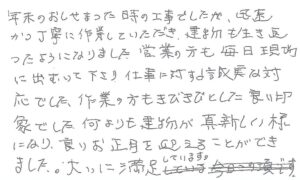 年末のおしせまった時の工事でしたが、迅速
かつ丁寧に作業していただき、建物も生き返
ったようになりました。営業の方も毎日現場
に出むいて下さり仕事に対する誠実な対
応でした。作業の方もきびきびとした良い印
象でした。何よりも建物が真新しい様
になり、良いお正月を迎えることができ
ました。大いに満足しています。